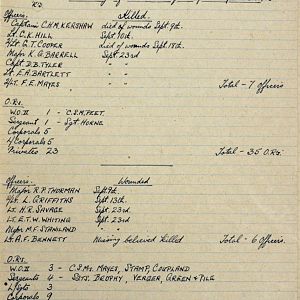 Officers. Killed.
Captain C.H.M. KERSHAW died of wounds Sept 9th.
Lt. C.K. HILL Sept. 10th.
2/Lt. G.T. COOPER died of wounds Sept 18th.
Major K.G. BARRELL Sept 23rd
Capt. D.B. TYLER " "
Lt. E.A. BARTLETT " "
2/Lt. F.E. MAYES " " Total - 7 Officers.
O.Rs.
W.O.II 1 - C.S.M. PEET.
Sergeant 1 - Sgt HORNE
Corporals 5
L/Corporals 5
Privates 23 Total - 35 O.Rs.
Officers. Wounded
Major R.P. THORMAN Sept 9th.
Lt. L. GRIFFITHS Sept. 13th.
Lt. H.R. SAVAGE Sept. 23rd
Lt. E.T.W. WHITING Sept. 23rd
Major M.F. STANILAND " "
Lt. A.F. BENNETT Missing believed Killed Total - 6 Officers.
O.Rs.
W.O.II 3 - C.S.Ms. MAYES, STAMP, COUPLAND
Sergeants 4 - Sgts. BROPHY, VERGER, GREEN + TILE
L/Sgts 3
Corporals 9